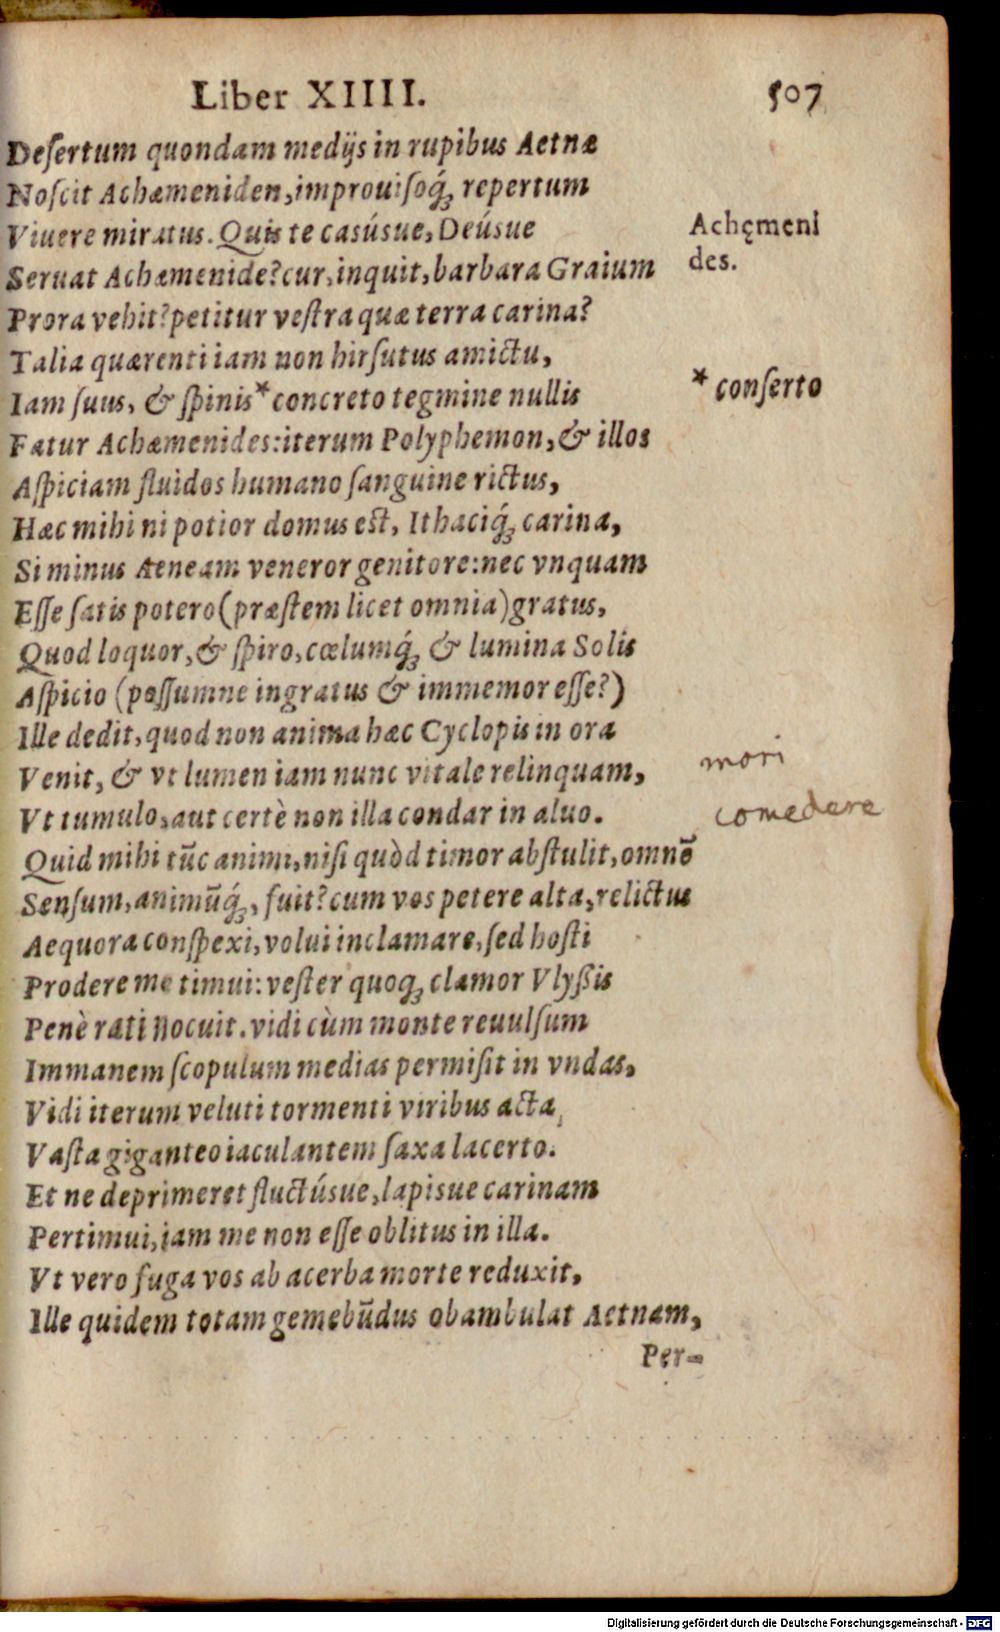 Liber XIIII. 507
Deſertum quondam medijs in rupibus Aetnæ
Noſcit Achæmeniden, improuiſoq́; repertum
Viuere miratus. Quis te casúsue, Deúsue
Achęmeni
Seruat Achæmenide? cur, inquit, barbara Graium
des.
Prora vehit? petitur veſtra quæ terra carina?
Talia quærenti iam non hirſutus amictu,
Iam ſuus, & ſpinis * concreto tegmine nullis
* conſerto
Fatur Achæmenides: iterum Polyphemon, & illos
Aſpiciam fluidos humano ſanguine rictus,
Hæc mihi ni potior domus est, Ithaciq́; carina,
Si minus Aeneam veneror genitore: nec vnquam
Eſſe ſatis potero (præſtem licet omnia) gratus,
Quod loquor, & ſpiro, cœlumq́; & lumina Solis
Aſpicio (poſſumne ingratus & immemor eſſe?)
Ille dedit, quod non anima hæc Cyclopis in ora
Venit, & vt lumen iam nunc vitale relinquam,
mori
Vt tumulo, aut certè non illa condar in aluo.
comedere
Quid mihi tūc animi, niſi quòd timor abſtulit, omnē
Senſum, animūq́;, fuit? cum vos petere alta, relictus
Aequora conſpexi, volui inclamare, ſed hoſti
Prodere me timui: veſter quoq; clamor Vlyßis
Penè rati nocuit. vidi cùm monte reuulſum
Immanem ſcopulum medias permiſit in vndas,
Vidi iterum veluti tormenti viribus acta,
Vaſta giganteo iaculantem ſaxa lacerto.
Et ne deprimeret fluctúsue, lapisue carinam
Pertimui, iam me non eſſe oblitus in illa.
Vt vero fuga vos ab acerba morte reduxit,
Ille quidem totam gemebūdus obambulat Aetnam,
Per-
Digitalisierung gefördert durch die Deutsche Forschungsgemeinschaft - DFG